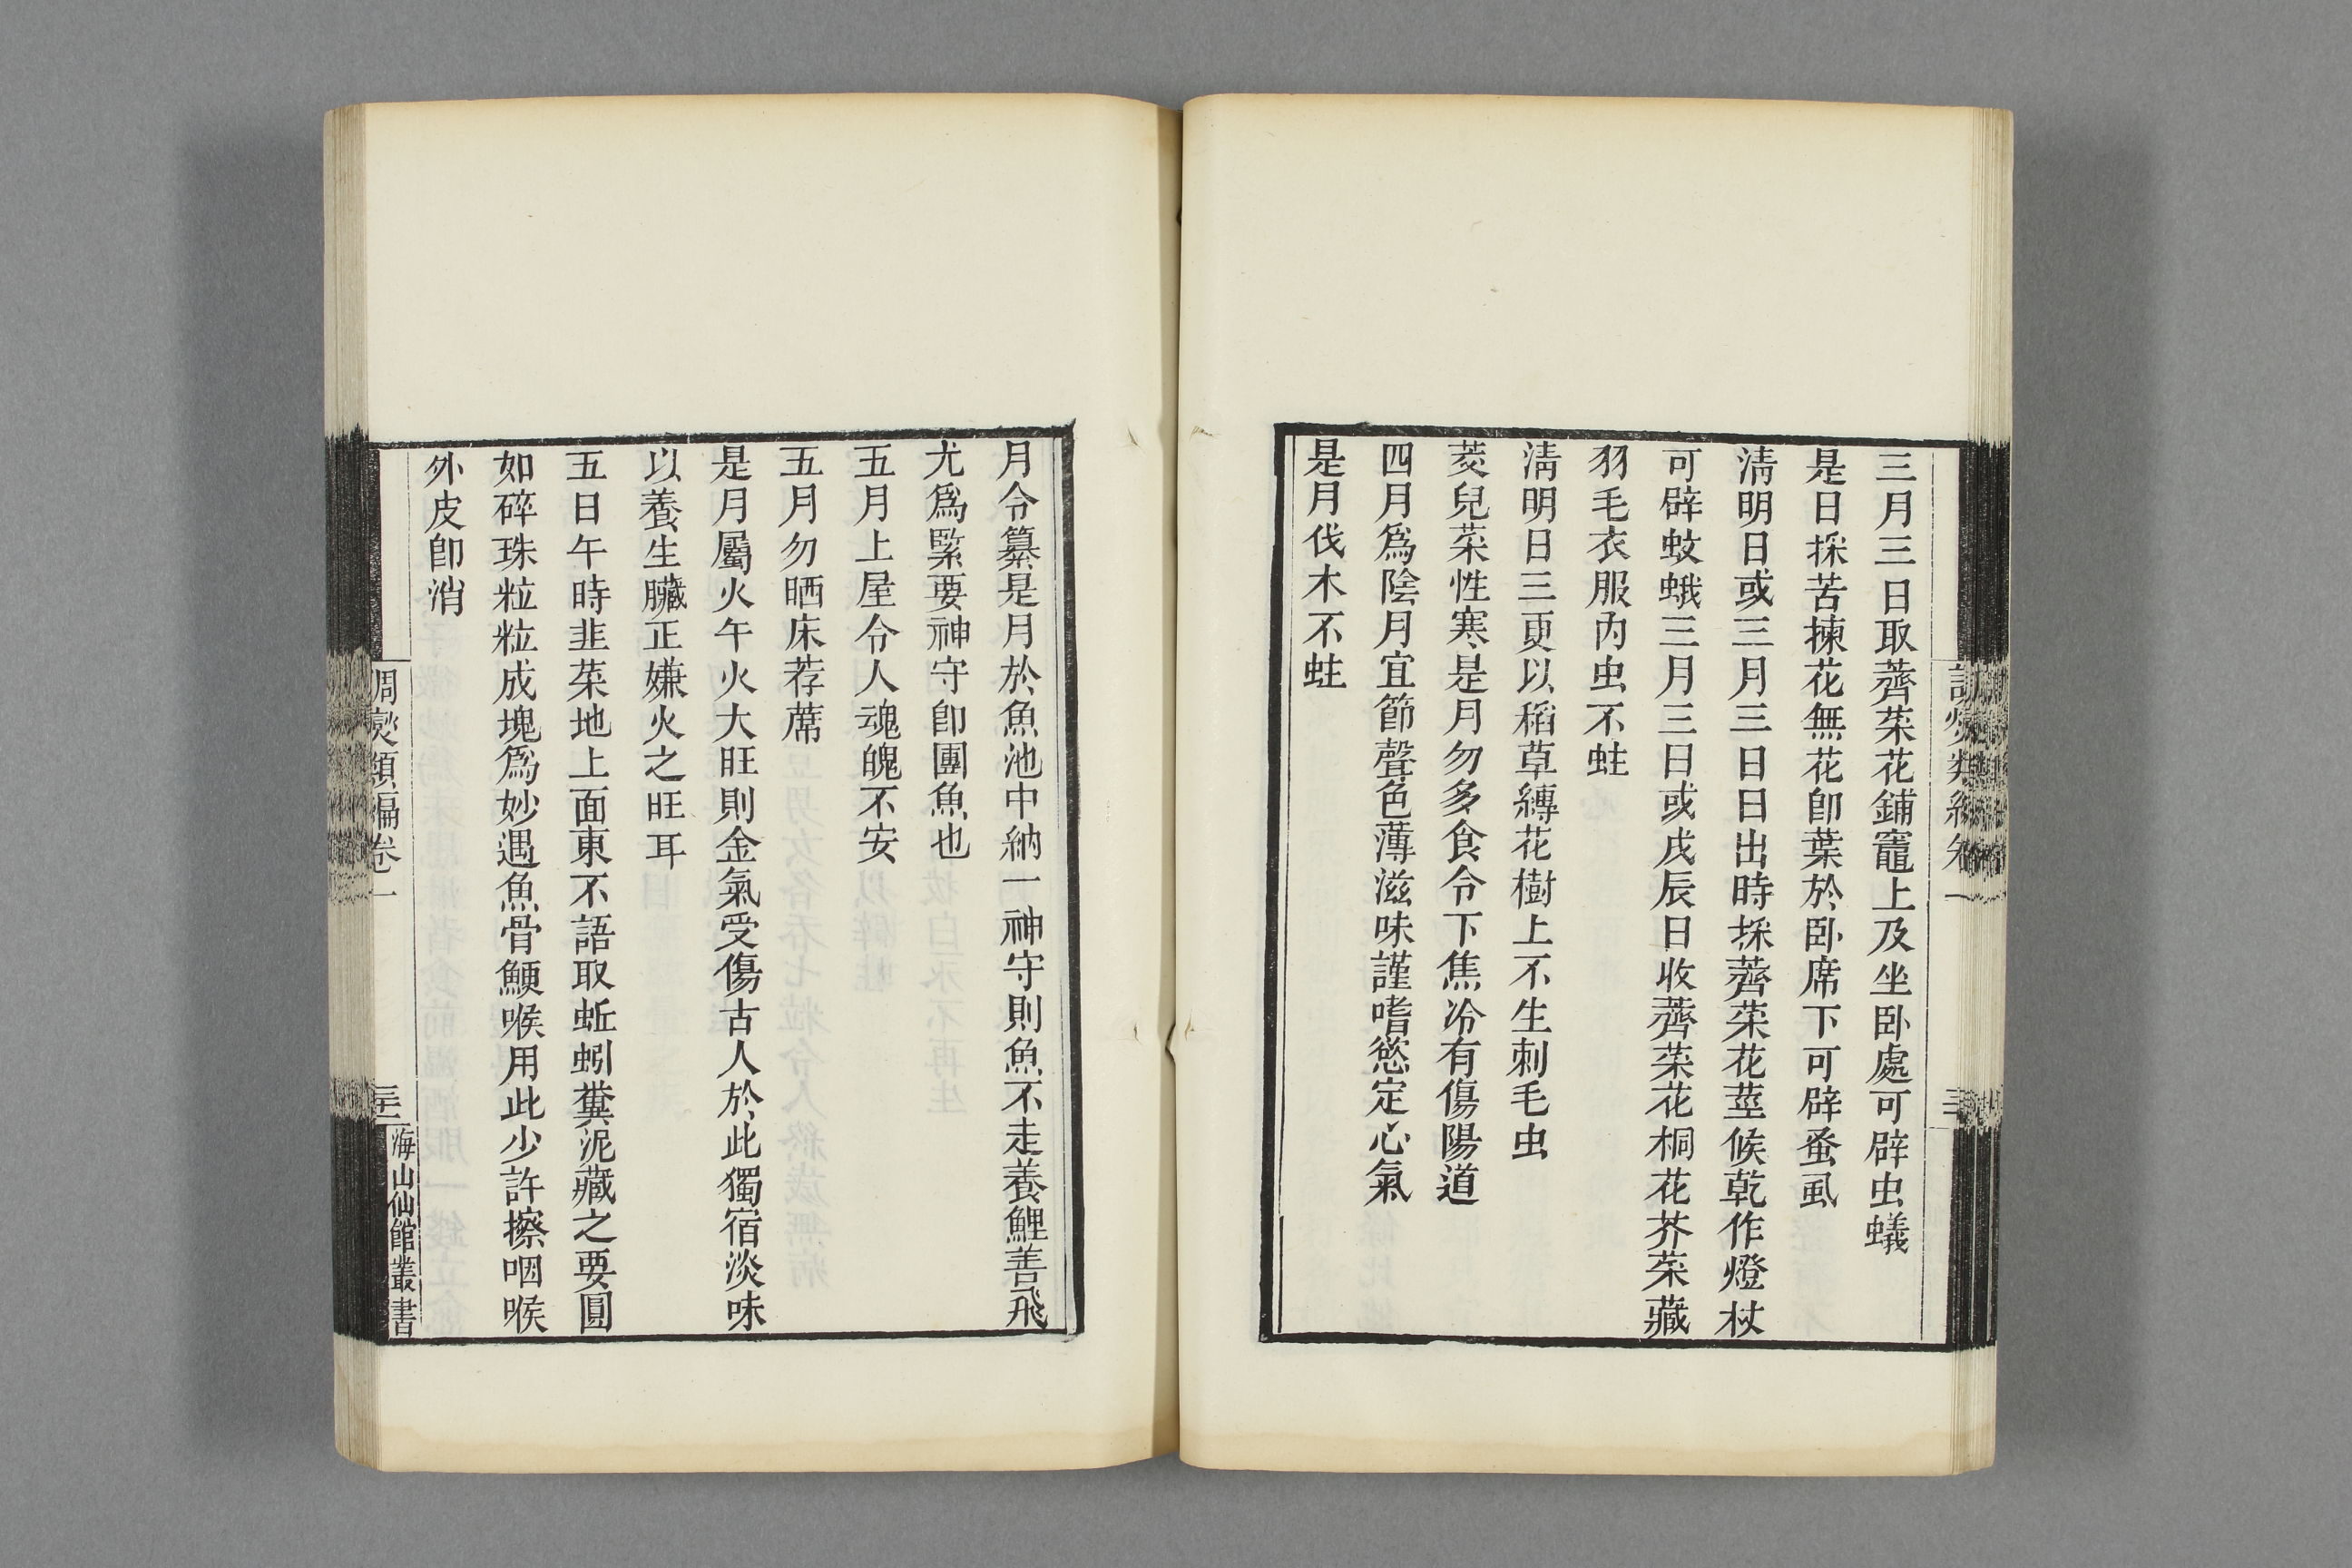 三月三日取薺菜花鋪竈上及坐臥處可辟虫蟻
是日採苦楝花無花卽葉於臥席下可辟蚤虱
淸明日或三月三日日出時採薺菜花莖候乾作燈杖
可辟蚊蛾三月三日或戊辰日收薺菜花桐花芥菜藏
羽毛衣服內虫不蛀
淸明日三更以稻草縛花樹上不生刺毛虫
茭兒菜性寒是月勿多食令下焦冷有傷陽道
四月爲陰月宜節聲色薄滋味謹嗜慾定心氣
是月伐木不蛀
月令纂是月於魚池中納一神守則魚不走養鯉善飛
尤爲緊要神守卽團魚也
五月上屋令人魂魄不安
五月勿晒床荐蓆
是月屬火午火大旺則金氣受傷古人於此獨宿淡味
以養生臟正嫌火之旺耳
五日午時韭菜地上面東不語取蚯蚓糞泥藏之要圓
如碎珠粒粒成塊爲妙遇魚骨鯁喉用此少許擦咽喉
外皮卽消
調燮類編卷一
海山仙館叢書